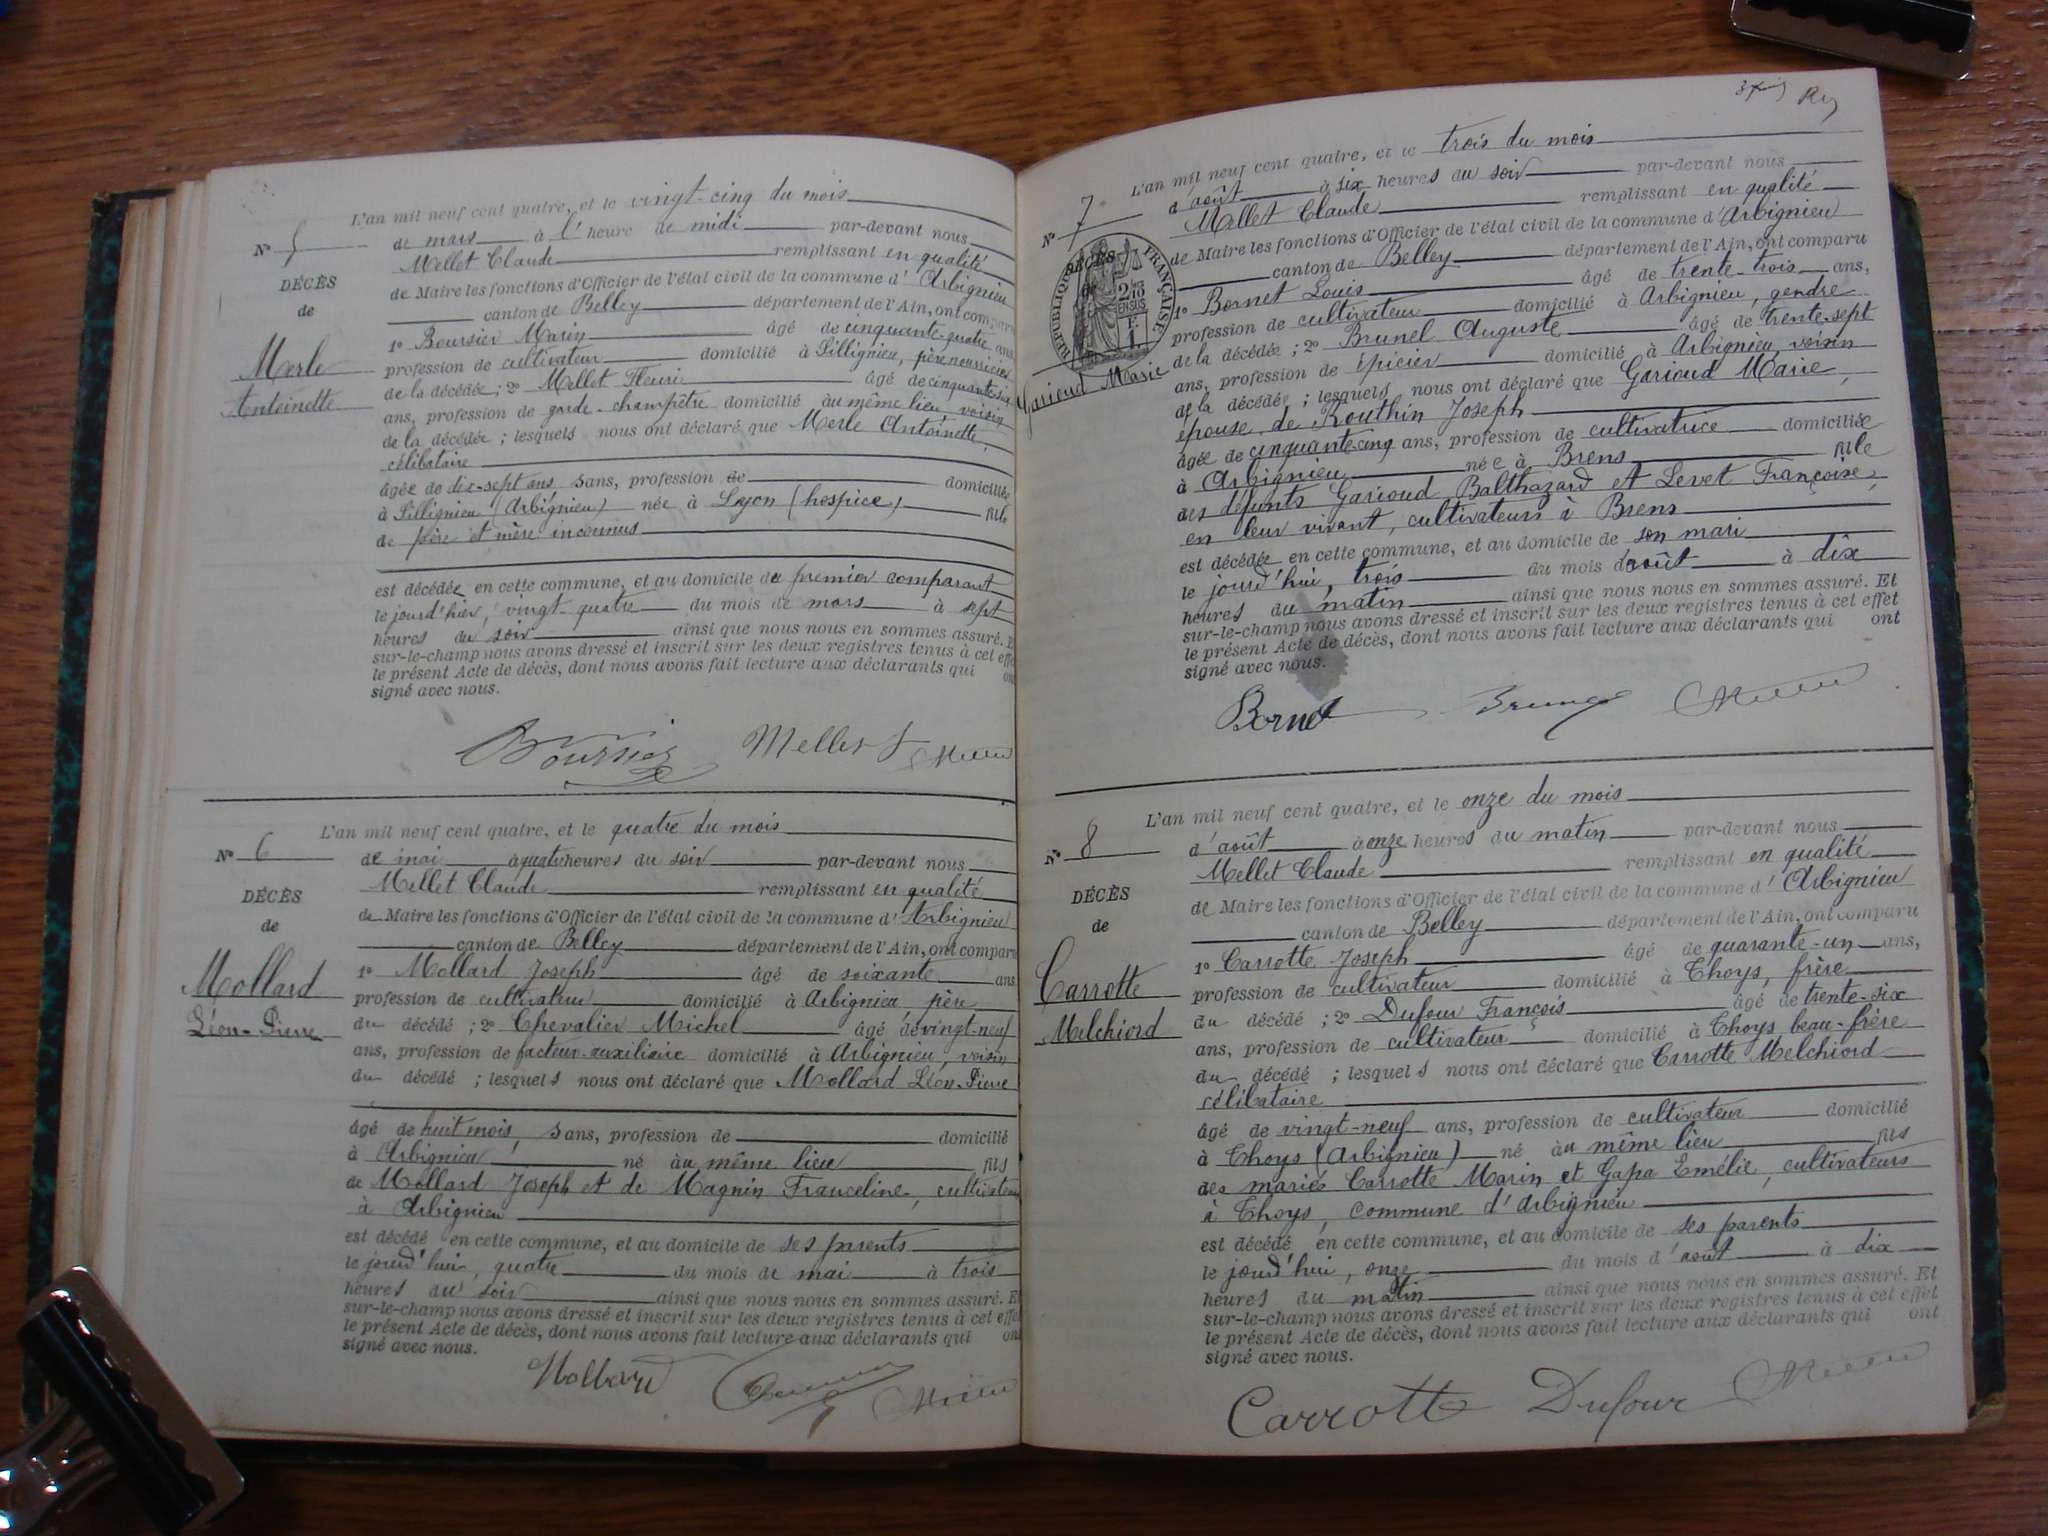 L'an mil neuf cent quatre, et le vingt-cinq du mois
N° 5 de mars à l'heure de midi par-devant nous
Mellet Claude remplissant en qualité
DÉCÈS de Maire les fonctions d'Officier de l'état civil de la commune d'Arbignieu
de canton de Belley département de l'Ain, ont comparu
1° Boursier Marin âgé de cinquante-quatre ans
Merle profession de cultivateur domicilié à Sillignieu, père nourricier
Antoinette de la décédée ; 2° Mellet Fleuri âgé de cinquante-six
ans, profession de garde-champêtre domicilié au même lieu, voisin
de la décédée ; lesquels nous ont déclaré que Merle Antoinette,
célibataire
âgée de dix-sept ans, sans, profession de domiciliée
à Sillignieu (Arbignieu) née à Lyon (hospice) fille
de père et mère inconnus
est décédée en cette commune, et au domicile du premier comparant
le jourd'hier, vingt-quatre du mois de mars à sept
heures du soir ainsi que nous nous en sommes assuré. Et
sur-le-champ nous avons dressé et inscrit sur les deux registres tenus à cet effet
le présent Acte de décès, dont nous avons fait lecture aux déclarants qui ont
signé avec nous.
Boursier Mellet
L'an mil neuf cent quatre, et le quatre du mois
N° 6 de mai à quatre heures du soir par-devant nous
Mellet Claude remplissant en qualité
DÉCÈS de Maire les fonctions d'Officier de l'état civil de la commune d'Arbignieu
de canton de Belley département de l'Ain, ont comparu
Mollard 1° Mollard Joseph âgé de soixante ans
profession de cultivateur domicilié à Arbignieu, père
Léon-Pierre du décédé ; 2° Chevalier Michel âgé de vingt-neuf
ans, profession de facteur-auxiliaire domicilié à Arbignieu, voisin
du décédé ; lesquels nous ont déclaré que Mollard Léon-Pierre
âgé de huit mois, sans, profession de domicilié
à Arbignieu né au même lieu fils
de Mollard Joseph et de Magnin Franceline, cultivateurs
à Arbignieu
est décédé en cette commune, et au domicile de ses parents
le jourd'hui, quatre du mois de mai à trois
heures du soir ainsi que nous nous en sommes assuré. Et
sur-le-champ nous avons dressé et inscrit sur les deux registres tenus à cet effet
le présent Acte de décès, dont nous avons fait lecture aux déclarants qui ont
signé avec nous.
Mollard
L'an mil neuf cent quatre, et le trois du mois
N° 7 d'août à six heures du soir par-devant nous
Mellet Claude remplissant en qualité
DÉCÈS de Maire les fonctions d'Officier de l'état civil de la commune d'Arbignieu
canton de Belley département de l'Ain, ont comparu
RÉPUBLIQUE FRANÇAISE
1° Bornet Louis âgé de trente-trois ans,
profession de cultivateur domicilié à Arbignieu, gendre
de la décédée ; 2° Brunel Auguste âgé de trente-sept
Garioud Marie ans, profession de épicier domicilié à Arbignieu, voisin
de la décédée ; lesquels nous ont déclaré que Garioud Marie,
épouse de Routhin Joseph
âgée de cinquante-cinq ans, profession de cultivatrice domiciliée
à Arbignieu née à Brens fille
des défunts Garioud Balthazard et Levet Françoise,
en leur vivant, cultivateurs à Brens
est décédée en cette commune, et au domicile de son mari
le jourd'hui, trois du mois d'août à dix
heures du matin ainsi que nous nous en sommes assuré. Et
sur-le-champ nous avons dressé et inscrit sur les deux registres tenus à cet effet
le présent Acte de décès, dont nous avons fait lecture aux déclarants qui ont
signé avec nous.
Bornet Brunel
L'an mil neuf cent quatre, et le onze du mois
N° 8 d'août à onze heures du matin par-devant nous
Mellet Claude remplissant en qualité
DÉCÈS de Maire les fonctions d'Officier de l'état civil de la commune d'Arbignieu
de canton de Belley département de l'Ain, ont comparu
Carrotte 1° Carrotte Joseph âgé de quarante-un ans,
profession de cultivateur domicilié à Thoys, frère
Melchiord du décédé ; 2° Dufour François âgé de trente-six
ans, profession de cultivateur domicilié à Thoys, beau-frère
du décédé ; lesquels nous ont déclaré que Carrotte Melchiord
célibataire
âgé de vingt-neuf ans, profession de cultivateur domicilié
à Thoys (Arbignieu) né au même lieu fils
des mariés Carrotte Marin et Gapa Emélie, cultivateurs
à Thoys, commune d'Arbignieu
est décédé en cette commune, et au domicile de ses parents
le jourd'hui, onze du mois d'août à dix
heures du matin ainsi que nous nous en sommes assuré. Et
sur-le-champ nous avons dressé et inscrit sur les deux registres tenus à cet effet
le présent Acte de décès, dont nous avons fait lecture aux déclarants qui ont
signé avec nous.
Carrotte Dufour